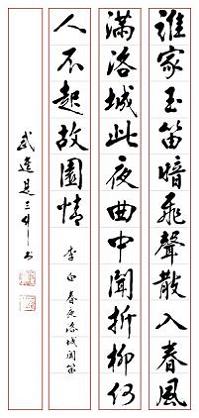 誰家玉笛暗飛聲散入春風
滿洛城此夜曲中聞折柳何
人不起故園情 李白春夜洛城聞笛
武進